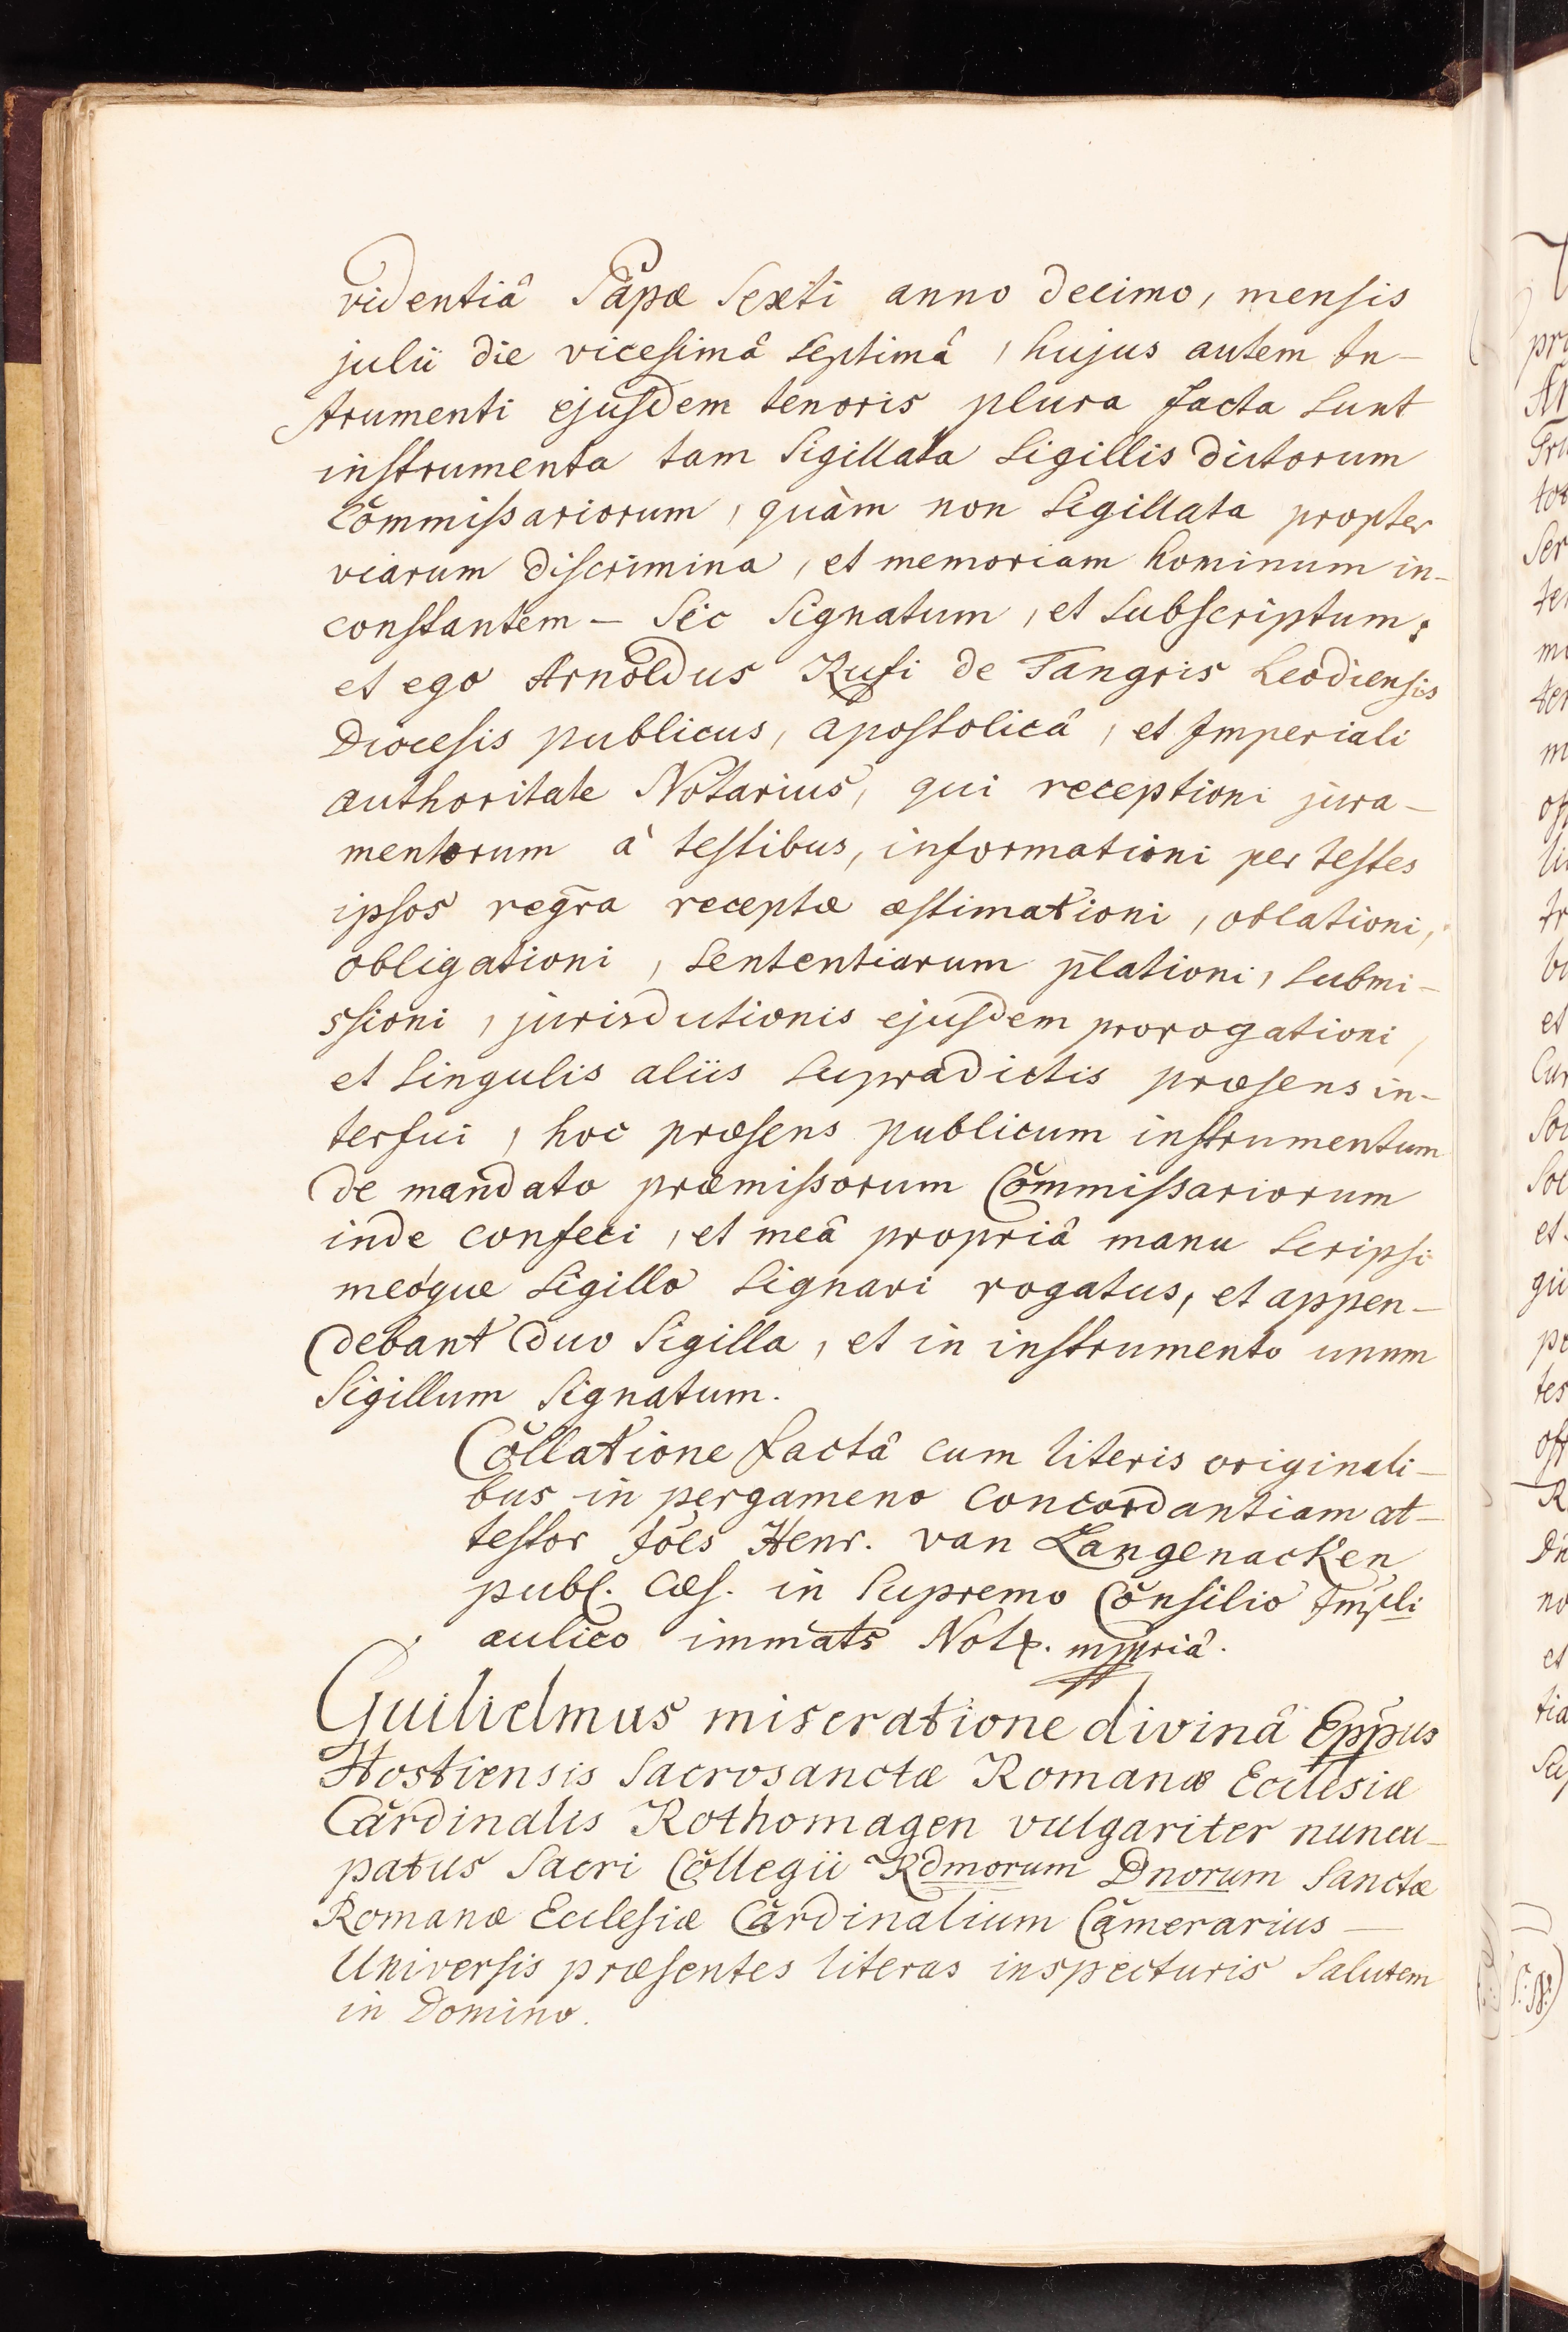 videntiâ Papæ Sexti anno decimo, mensis
julii die vicesimâ septimâ, hujus autem In-
strumenti ejusdem tenoris plura facta sunt
instrumenta tam sigillata sigillis dictorum
Commissariorum, quàm non sigillata propter
viarum discrimina, et memoriam hominum in-
constantem – sic signatum, et subscriptum:
et ego Arnoldus Rufi de Tangris Leodiensis
Diocesis publicus, apostolicâ, et Imperiali
authoritate Notarius, qui receptioni jura-
mentorum à testibus, informationi per testes
ipsos regr̄a receptæ æstimationi, oblationi,
obligationi, sententiarum p̄lationi, submi-
ssioni, jurisdictionis ejusdem prorogationi,
et singulis aliis supradictis præsens in-
terfui, hoc præsens publicum instrumentum
de mandato præmissorum Commissariorum
inde confeci, et meâ propriâ manu scripsi
meóque sigillo signari rogatus, et appen-
debant duo sigilla, et in instrumento unum
sigillum signatum.
Collatione factâ cum literis originali-
bus in pergameno concordantiam at-
testor Jōes Henr. van Langenacken
publ. cæs. in supremo Consilio Imp̄li
aulico immats Not. mppriâ.
Guilielmus miseratione divinâ Epp̄us
Hostiensis Sacrosanctæ Romanæ Ecclesiæ
Cardinalis Rothomagen vulgariter nuncu-
patus Sacri Collegii Rdmorum Dnorum Sanctæ
Romanæ Ecclesiæ Cardinalium Camerarius –
Universis præsentes literas inspecturis Salutem
in Domino.